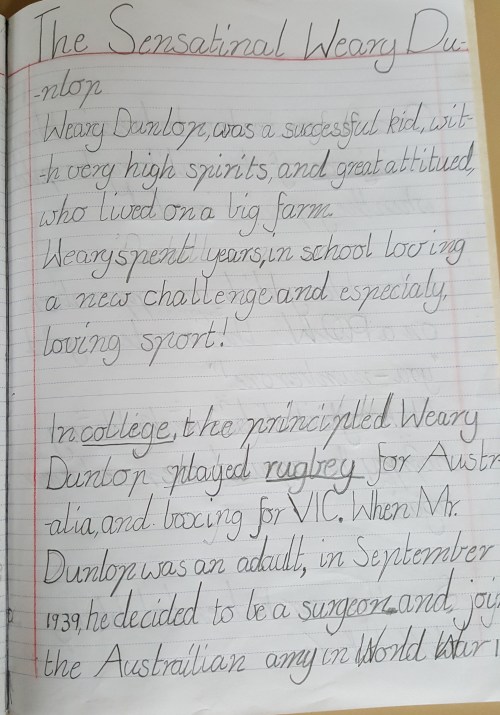 The Sensatinal Weary Du-
-nlop
Weary Dunlop, was a successful kid, wit-
-h very high spirits, and great attitued,
who lived on a big farm.
Weary spent years, in school loving
a new challenge and especialy,
loving sport!
In college, the principled Weary
Dunlop played rugbey for Austr-
-alia, and boxing for VIC. When Mr.
Dunlop was an adault, in September
1939, he decided to be a surgeon and, joi
the Austrailian amy in World War